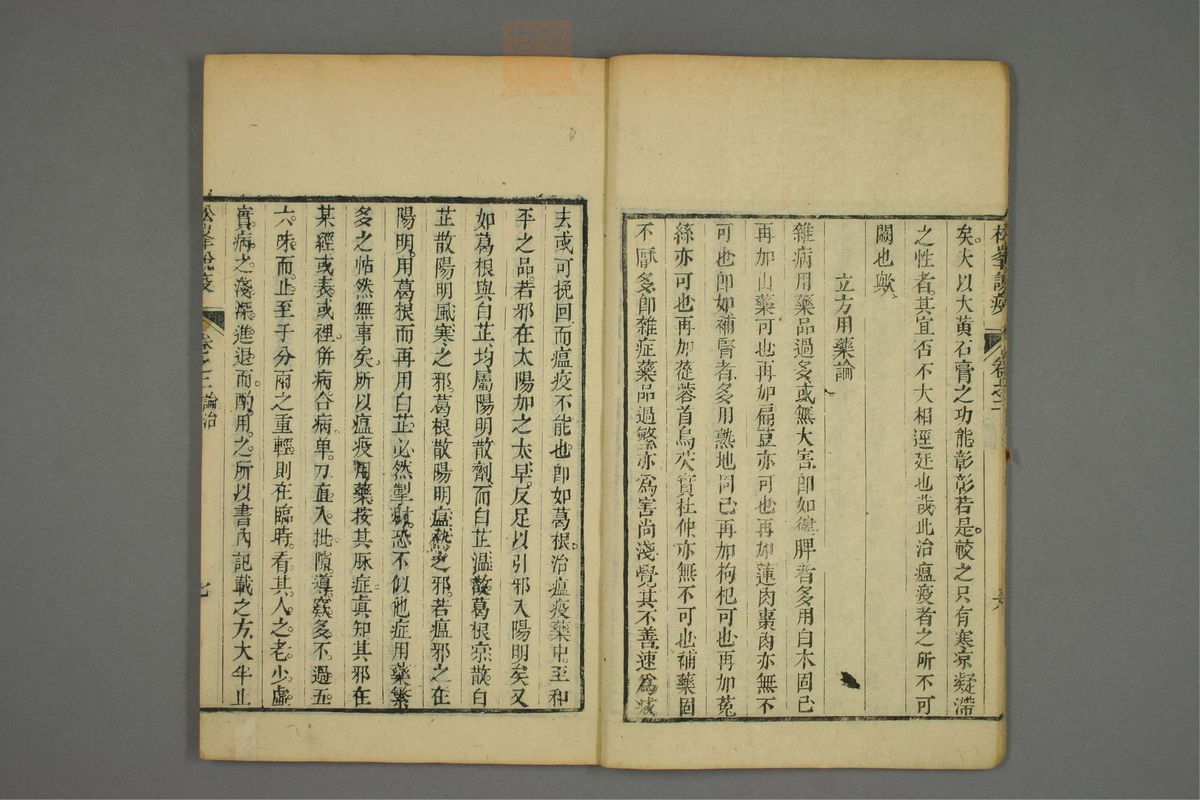 松峯說疫
卷之二
矣。大以大黄石膏之功能彰彰若是。較之只有寒凉凝滯
之性者。其宜否不大相逕廷也哉此治瘟疫者之所不可
闕也歟。
立方用藥論
雜病用藥品過多或無大害。卽如健脾者多用白术固已
再加山藥可也再加扁荳亦可也再如蓮肉棗肉亦無不
可也卽如補腎者多用熟地固已再加枸杞可也再加菟
絲亦可也再加蓯蓉首烏芡實杜仲亦無不可也補藥固
不厭多卽雜症藥品過繁亦爲害尚淺覺其不善速爲
去或可挽回而瘟疫不能也卽如葛根。治瘟疫藥中。至和
平之品。若邪在太陽加之太早。反足以引邪入陽明矣又
如葛根與白芷。均屬陽明散劑。而白芷溫散。葛根凉散。白
芷散陽明風寒之邪。葛根散陽明瘟熱之邪。若瘟邪之在
陽明。用葛根而再用白芷。必然掣肘。恐不似他症用藥繁
多之帖然無事矣。所以瘟疫用藥按其脈症。真知其邪在
某經或表或裡。併病合病。单刀直入。批隙導窾。多不過五
六味而止。至于分兩之重輕。則在臨時。看其人之老少。虛
實。病之淺深。進退而酌用。之。所以書內記載之方。大半止
松峯說疫
卷之二論治
七